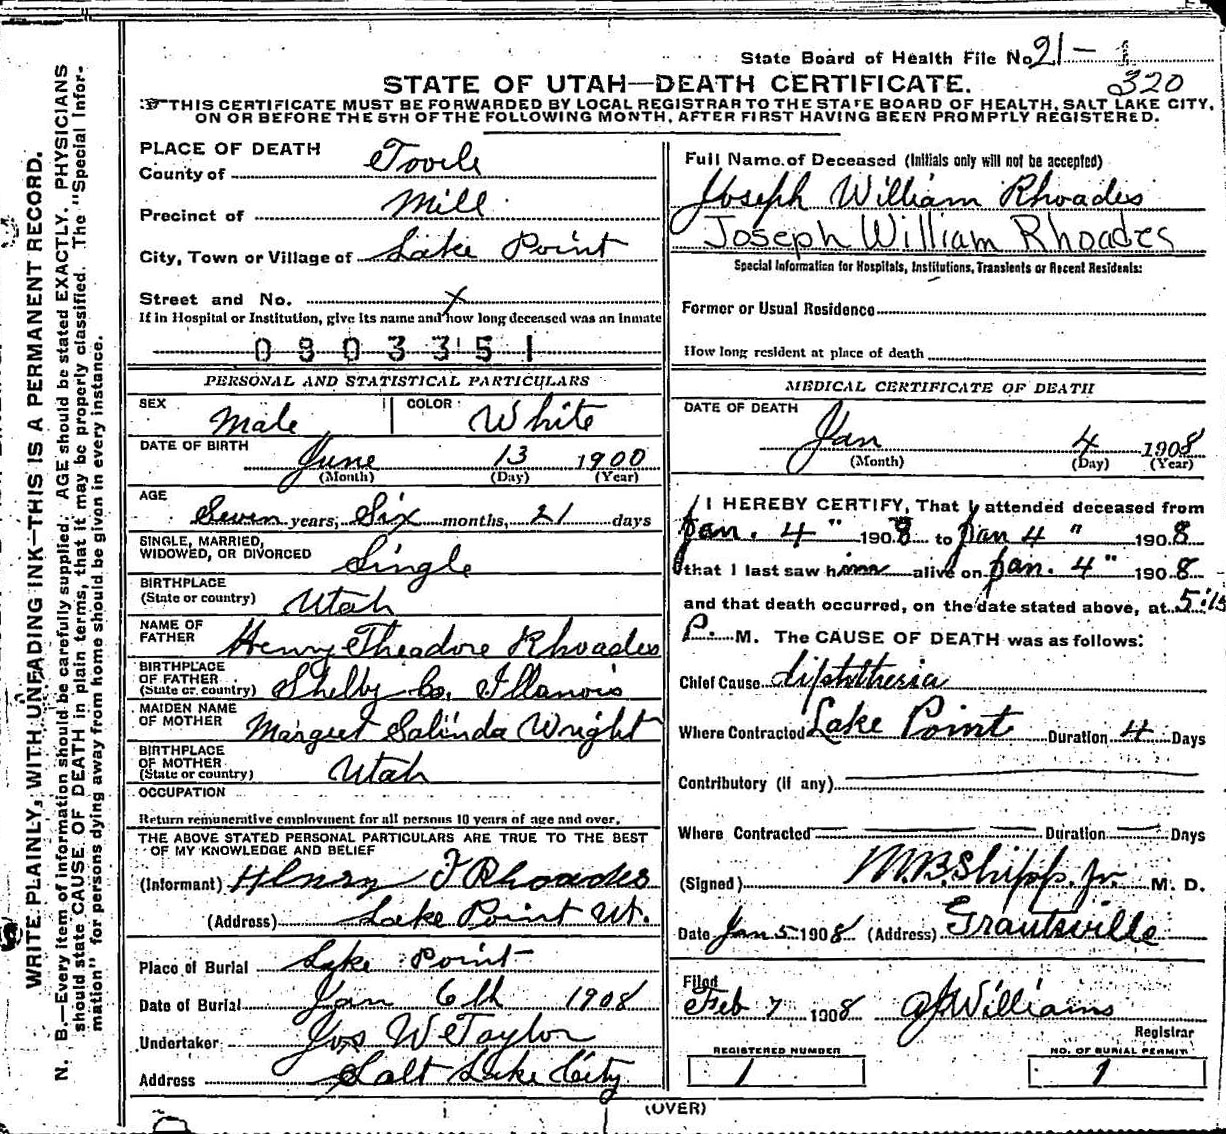 State Board of Health File No. 21-1
320
STATE OF UTAH—DEATH CERTIFICATE.
THIS CERTIFICATE MUST BE FORWARDED BY LOCAL REGISTRAR TO THE STATE BOARD OF HEALTH, SALT LAKE CITY,
ON OR BEFORE THE 5TH OF THE FOLLOWING MONTH, AFTER FIRST HAVING BEEN PROMPTLY REGISTERED.
WRITE PLAINLY, WITH UNFADING INK—THIS IS A PERMANENT RECORD.
N. B.—Every item of information should be carefully supplied. AGE should be stated EXACTLY. PHYSICIANS
should state CAUSE OF DEATH in plain terms, that it may be properly classified. The "Special Infor-
mation" for persons dying away from home should be given in every instance.
PLACE OF DEATH
County of Tooele
Precinct of Mill
City, Town or Village of Lake Point
Street and No. x
If in Hospital or Institution, give its name and how long deceased was an inmate
0903351
PERSONAL AND STATISTICAL PARTICULARS
SEX Male COLOR White
DATE OF BIRTH June 13 1900
(Month) (Day) (Year)
AGE
Seven years, Six months, 21 days
SINGLE, MARRIED,
WIDOWED, OR DIVORCED Single
BIRTHPLACE
(State or country) Utah
NAME OF
FATHER Henry Theadore Rhoades
BIRTHPLACE
OF FATHER
(State or country) Shelby Co. Illanois
MAIDEN NAME
OF MOTHER Margret Salinda Wright
BIRTHPLACE
OF MOTHER
(State or country) Utah
OCCUPATION
Return remunerative employment for all persons 10 years of age and over.
THE ABOVE STATED PERSONAL PARTICULARS ARE TRUE TO THE BEST
OF MY KNOWLEDGE AND BELIEF
(Informant) Henry T Rhoades
(Address) Lake Point Ut.
Place of Burial Lake Point
Date of Burial Jan 6th 1908
Undertaker Jos Wm Taylor
Address Salt Lake City
Full Name of Deceased (Initials only will not be accepted)
Joseph William Rhoades
Joseph William Rhoades
Special Information for Hospitals, Institutions, Transients or Recent Residents:
Former or Usual Residence
How long resident at place of death
MEDICAL CERTIFICATE OF DEATH
DATE OF DEATH
Jan 4 1908
(Month) (Day) (Year)
I HEREBY CERTIFY, That I attended deceased from
Jan. 4" 1908 to Jan 4" 1908
that I last saw him alive on Jan. 4" 1908
and that death occurred, on the date stated above, at 5:15
P. M. The CAUSE OF DEATH was as follows:
Chief Cause diphtheria
Where Contracted Lake Point Duration 4 Days
Contributory (if any)
Where Contracted Duration Days
(Signed) M.B. Shipp, Jr. M. D.
Date Jan 5 1908 (Address) Grantsville
Filed
Feb 7 1908 Williams
Registrar
REGISTERED NUMBER NO. OF BURIAL PERMIT
1 1
(OVER)